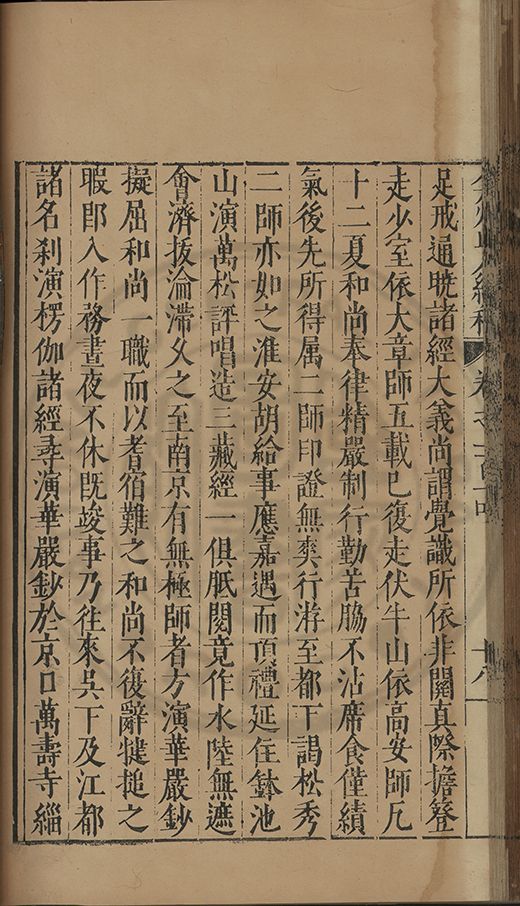 足戒通曉諸經大義尚謂覺識所依非關真際擔簦
走少室依大章師五載已復走伏牛山依高安師凡
十二夏和尚奉律精嚴制行勤苦脇不沾席食僅續
氣後先所得属二師印證無爽行游至都下謁松秀
二師亦如之淮安胡給事應嘉遇而頂禮延住鉢池
山演萬松評唱造三藏經一俱胝閱竟作水陸無遮
會濟拔淪滯久之至南京有無極師者方演華嚴鈔
擬屈和尚一職而以耆宿難之和尚不復辭犍搥之
暇即入作務晝夜不休既竣事乃往來吳下及江都
諸名刹演楞伽諸經尋演華嚴鈔於京口萬壽寺緇